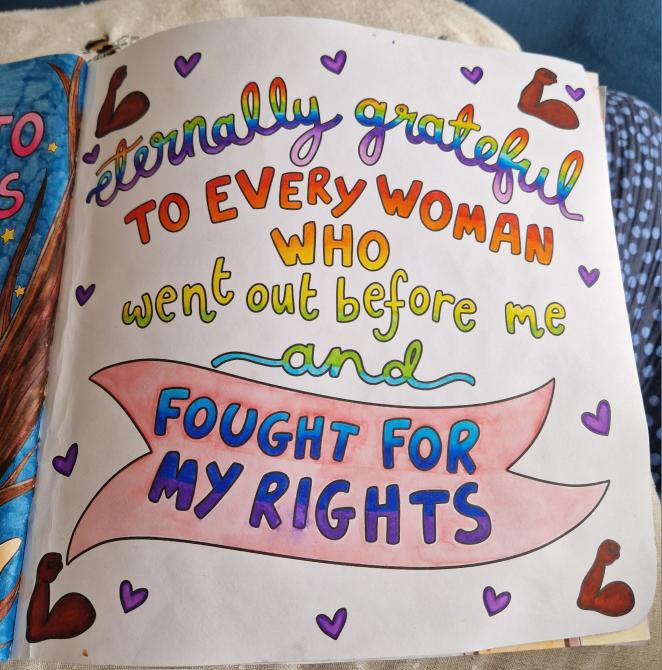 eternally grateful
TO EVERY WOMAN
WHO
went out before me
and
FOUGHT FOR
MY RIGHTS
TO
S